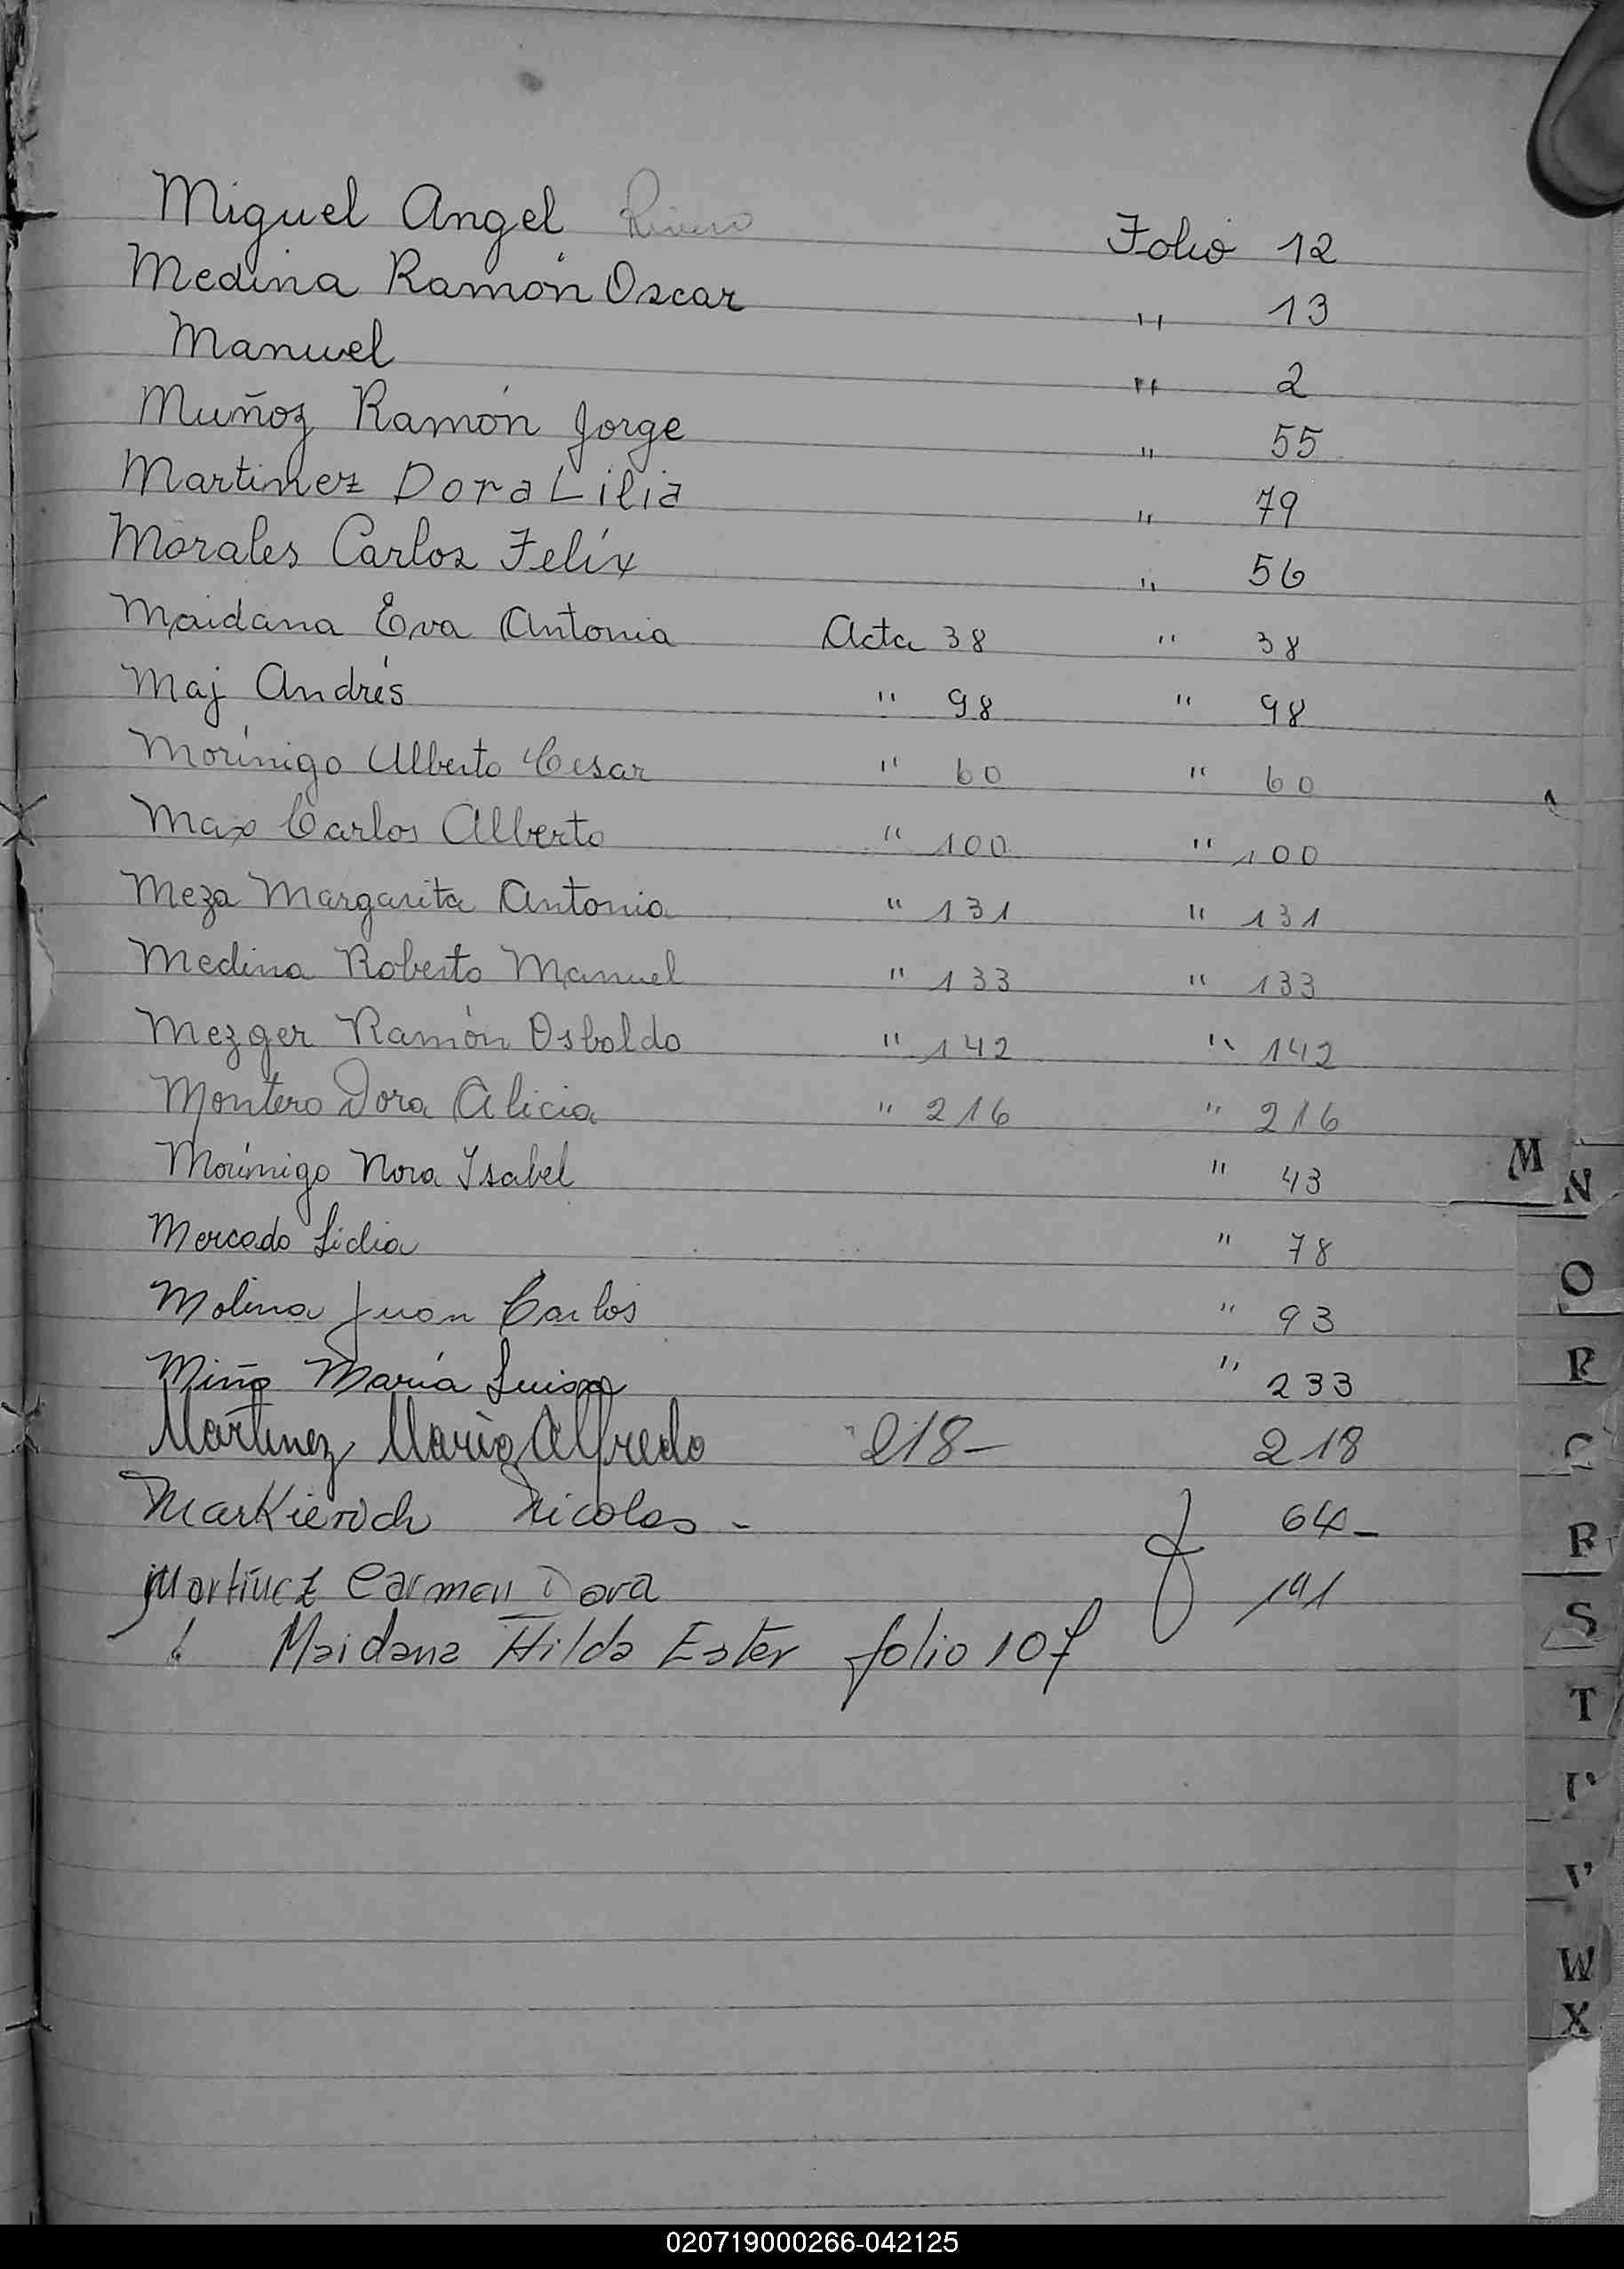 Miguel Angel Rivero Folio 12
Medina Ramón Oscar " 13
Manuel " 2
Muñoz Ramón Jorge " 55
Martinez Dora Lilia " 79
Morales Carlos Felix " 56
Maidana Eva Antonia Acta 38 " 38
Maj Andrés " 98 " 98
Morínigo Alberto Cesar " 60 " 60
Max Carlos Alberto " 100 " 100
Meza Margarita Antonia " 131 " 131
Medina Roberto Manuel " 133 " 133
Mezger Ramón Osbaldo " 142 " 142
Montero Dora Alicia " 216 " 216
Morínigo Nora Ysabel " 43
Mercado Lidia " 78
Molina Juan Carlos " 93
Miño María Luisa " 233
Martinez Mario Alfredo 218- 218
Nicolas - f 64-
Martínez Carmen Dora 191
Maidana Hilda Ester folio 107
M
N
O
P
R
S
T
V
W
X
020719000266-042125